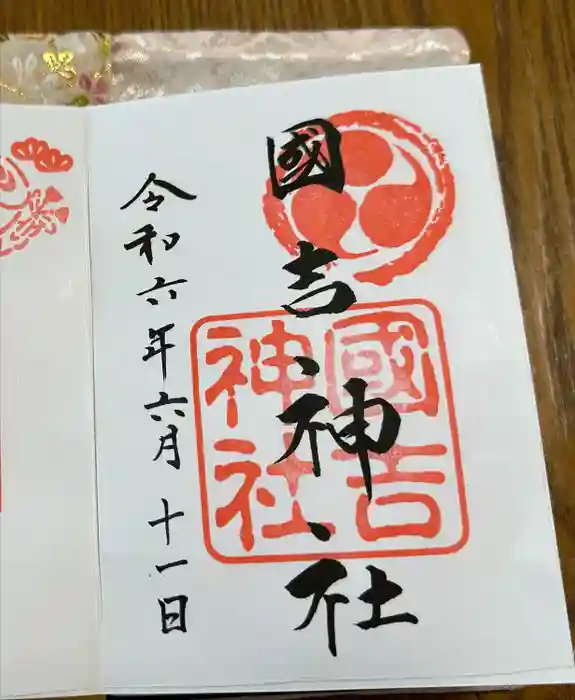 國吉神社
國吉
神社
令和六年六月十一日